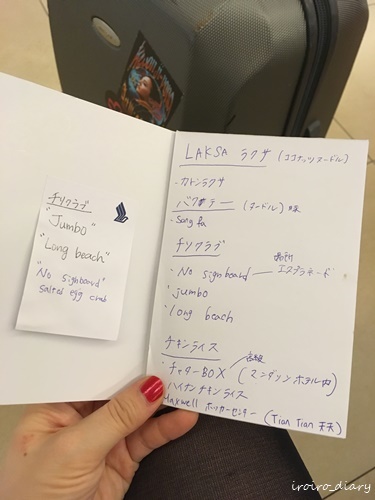 チリクラブ
"Jumbo"
"Long beach"
"No signboard"
salted egg crab
LAKSA ラクサ (ココナッツヌードル)
・カトンラクサ
バクテー (ヌードル)
・Song fa
チリクラブ
・No signboard — エスプラネード
・jumbo
・long beach
チキンライス
・チャターBOX (マンダリンホテル内)
・ハイナンチキンライス
Maxwell ホッカーセンター (Tian Tian 天天)
iroiro_diary